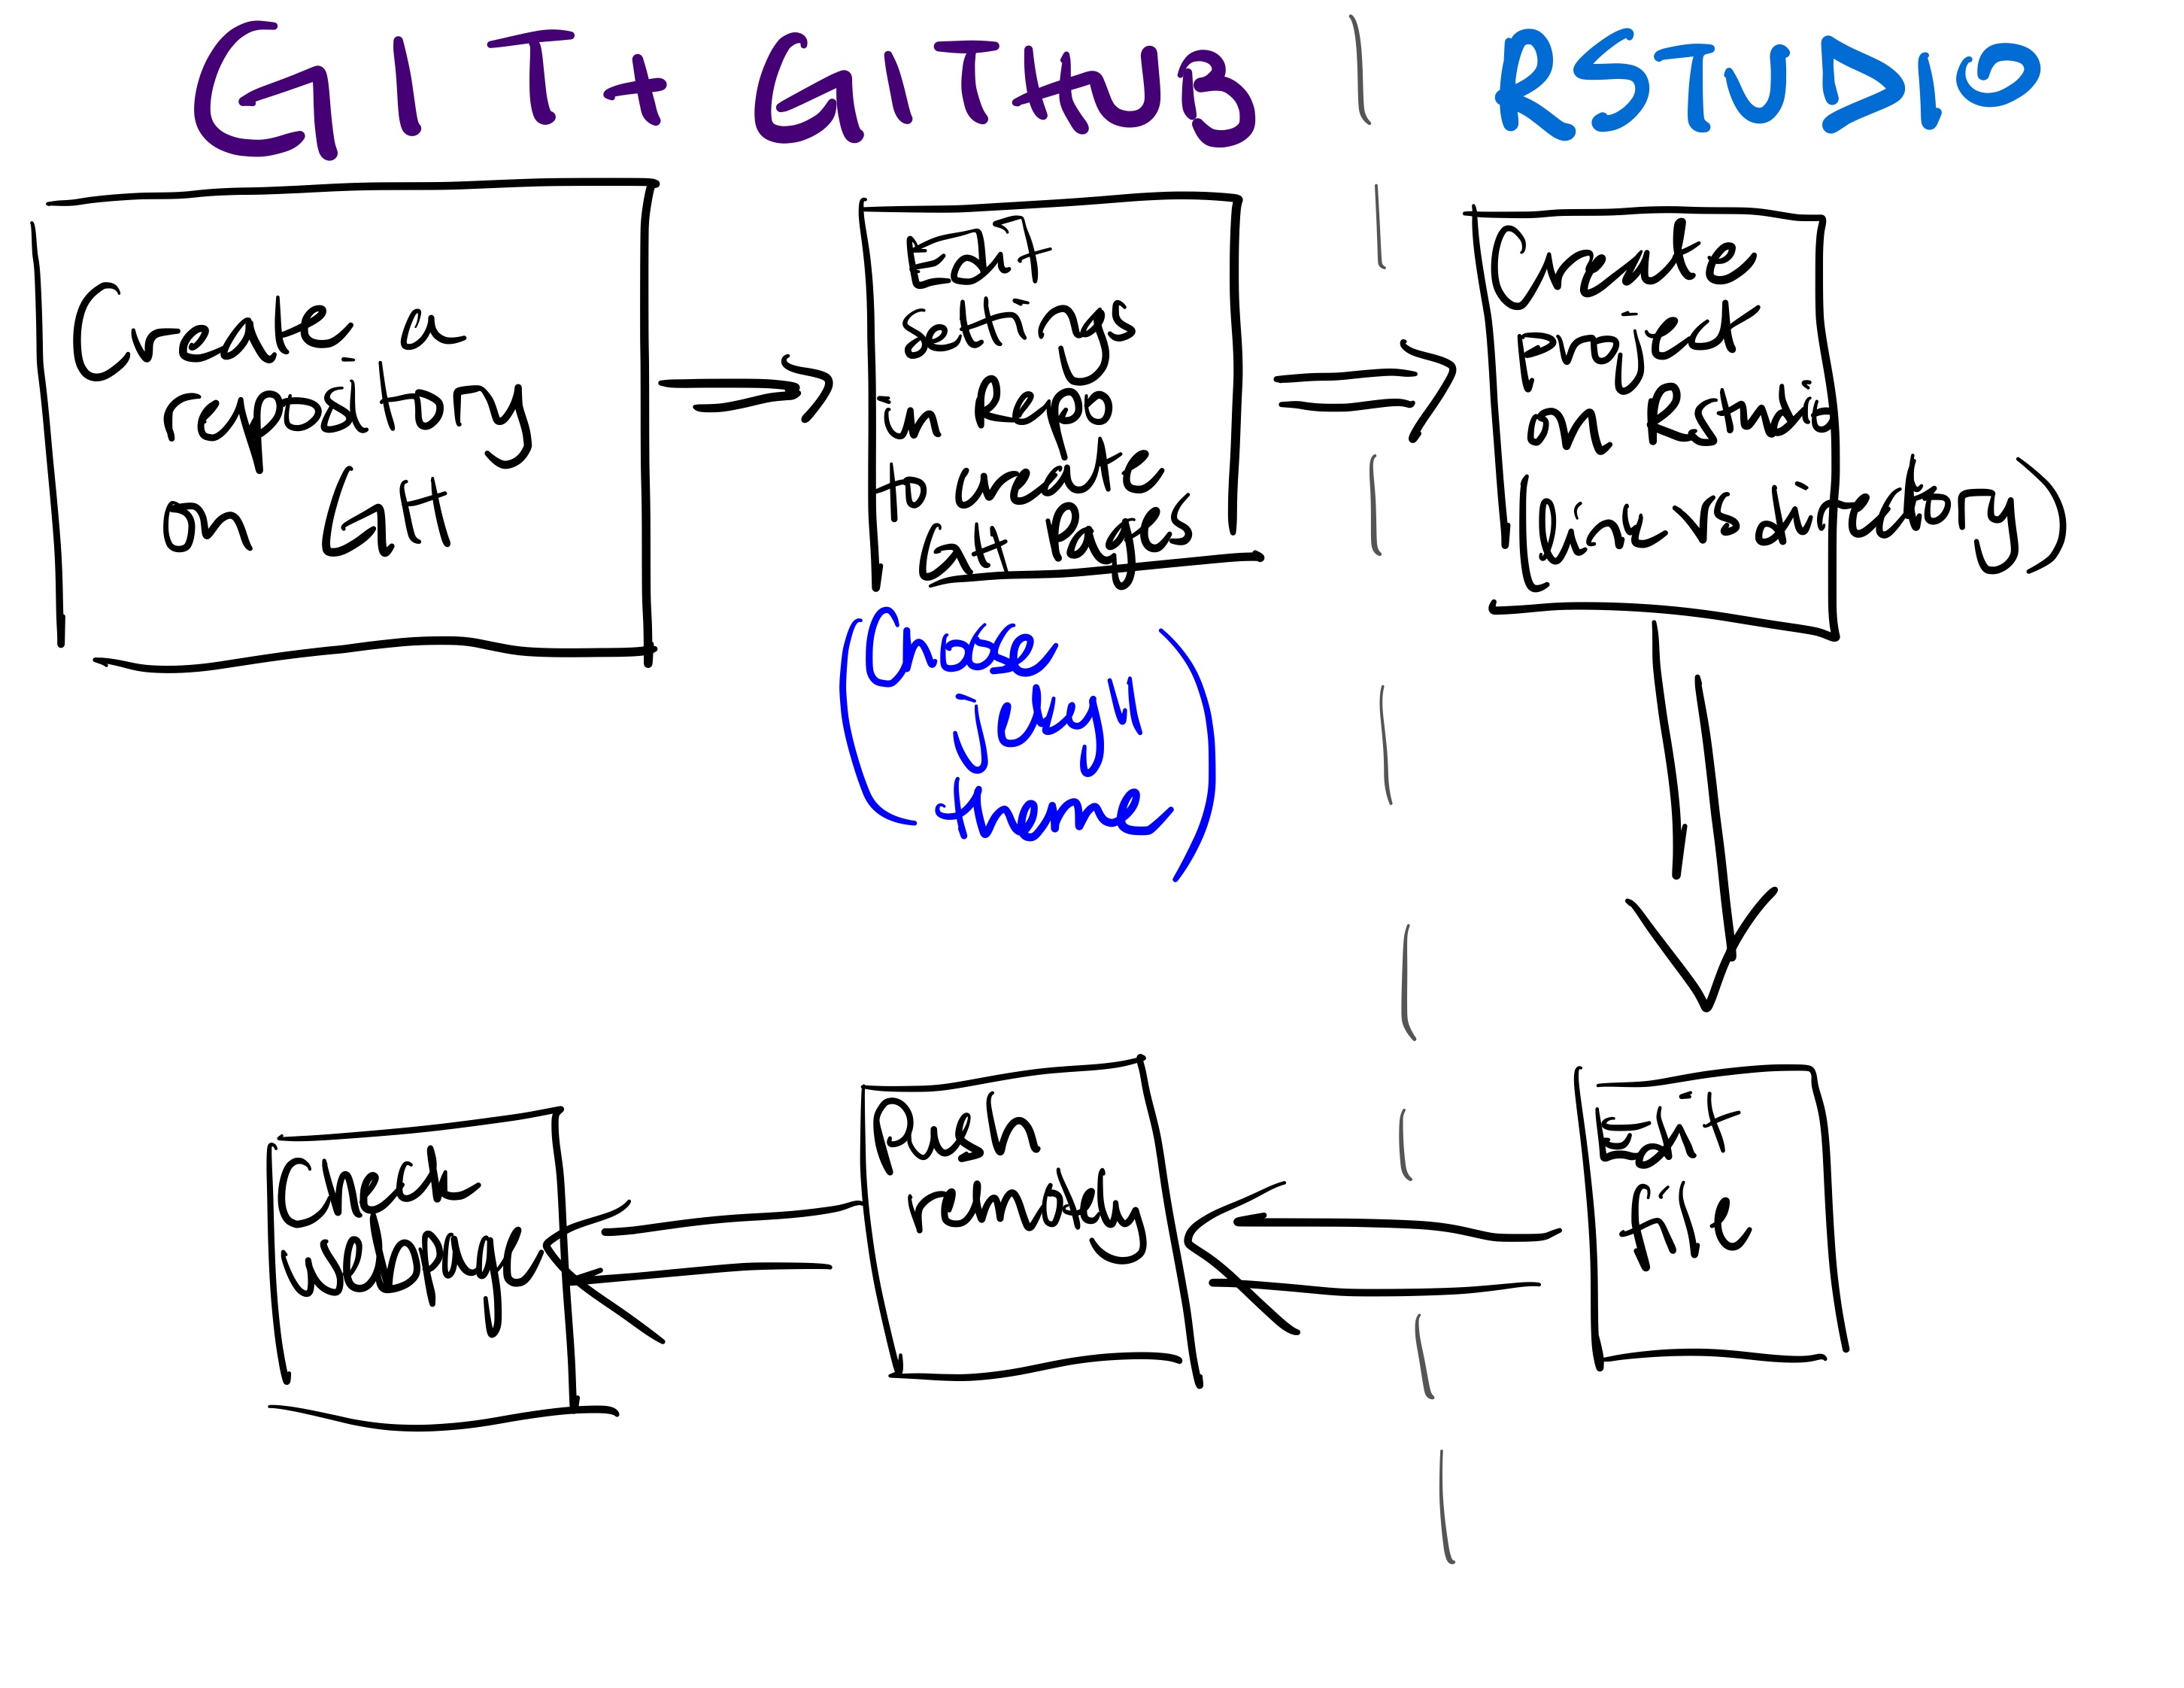 GIT + GITHUB
RSTUDIO
Create a
repository
on Git
Edit
settings
in Repo
to create
Git Pages
(Choose
jekyll
theme)
Create
project
on RStudio
(Via vs directory)
Edit
file
Push
remotely
Check
webpage